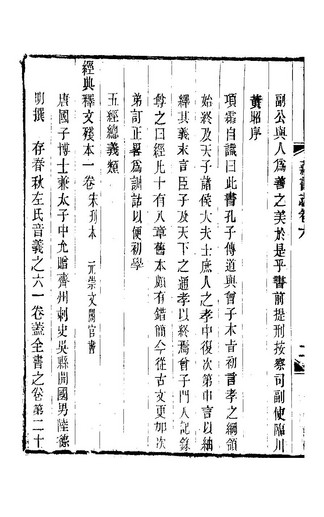 副公與人爲善之美於是乎書前提刑按察司副使臨川
黃昭序
項霦自識曰此書孔子傳道與曾子本旨初言孝之綱領
始終及天子諸侯大夫士庶人之孝中復次第申言以紬
繹其義末言臣子及天下之通孝以終焉曾子門人記錄
尊之曰經此十有八章舊本頗有錯簡今從古文更加次
弟訂正畧爲訓詁以便初學
五經總義類
經典釋文殘本一卷 宋刊本 元崇文閣官書
唐國子博士兼太子中允贈齊州刺史吳縣開國男陸德
明撰 存春秋左氏音義之六一卷蓋全書之卷第二十